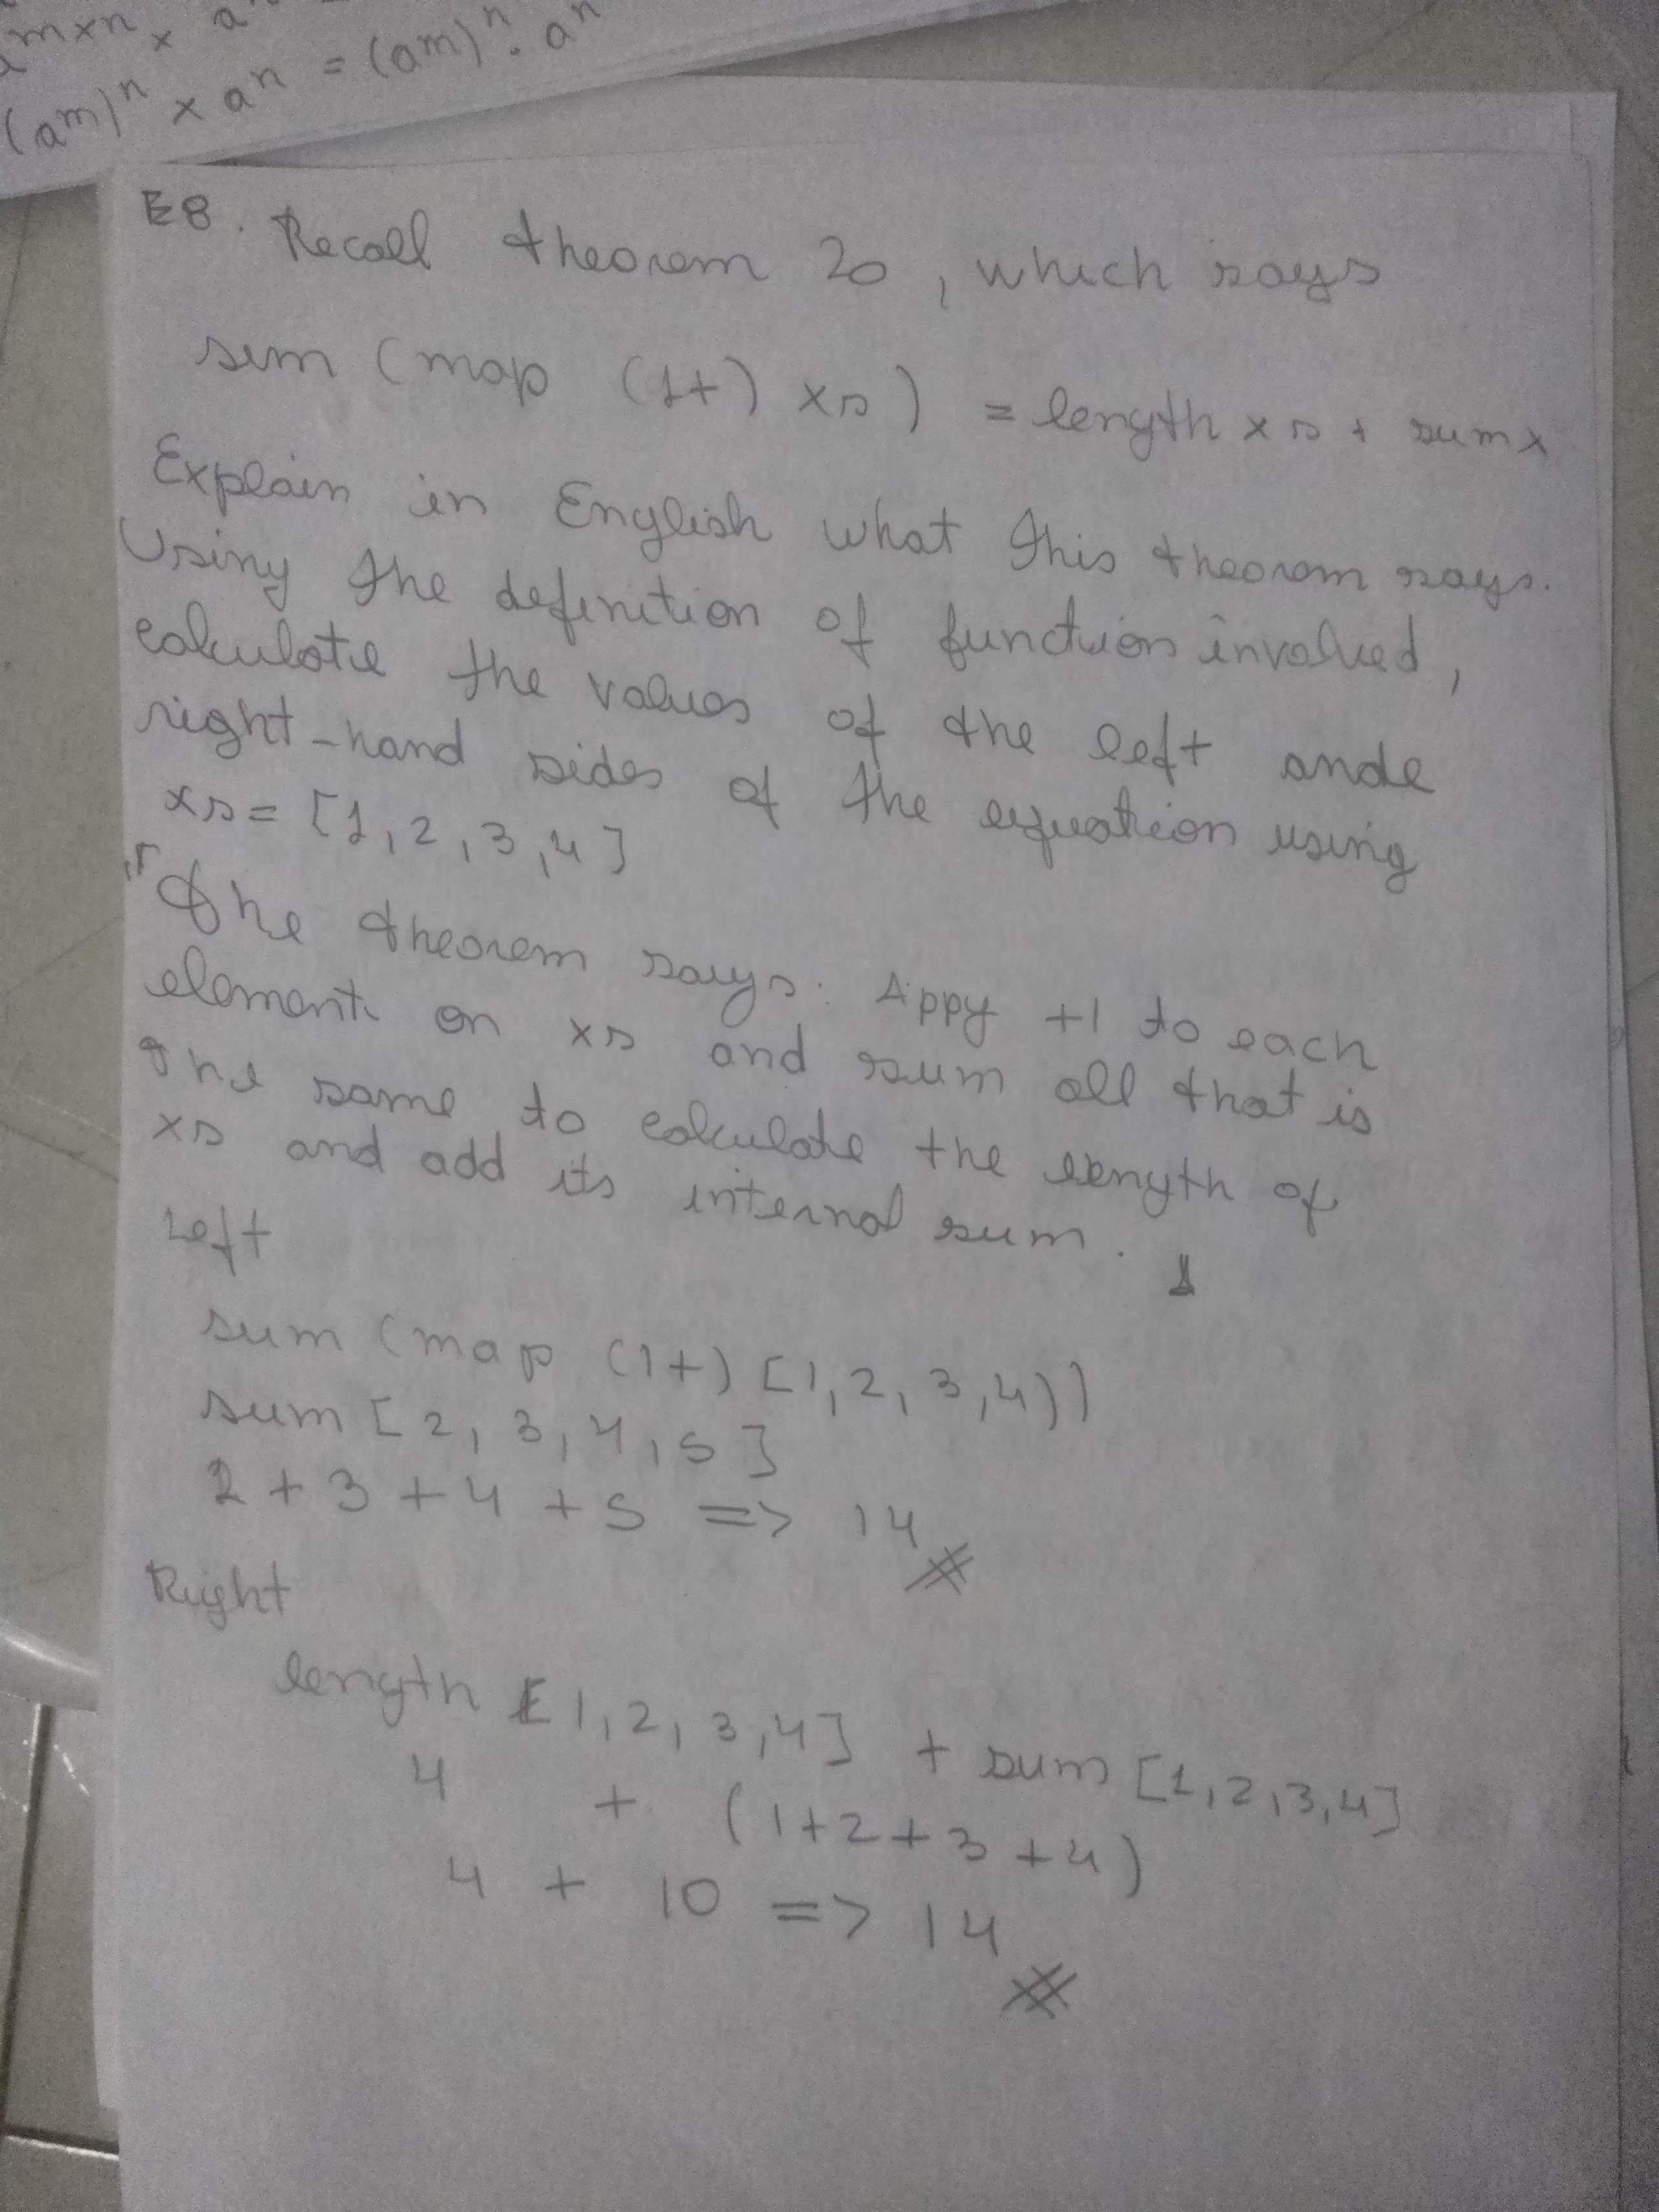 m×n × a
(am)ⁿ × aⁿ = (am)ⁿ . aⁿ
E8. Recall theorem 20, which says
sum (map (1+) xs) = length xs + sum x
Explain in English what this theorem says.
Using the definition of function involved,
calculate the values of the left ande
right-hand sides of the equation using
xs = [1,2,3,4]
The theorem says: Appy +1 to each
element on xs and sum all that is
the same to calculate the length of
xs and add its internal sum.
Left
sum (map (1+) [1,2,3,4))
sum [2,3,4,5]
2 + 3 + 4 + 5 => 14
Right
length [1,2,3,4] + sum [1,2,3,4]
4 + (1+2+3+4)
4 + 10 => 14